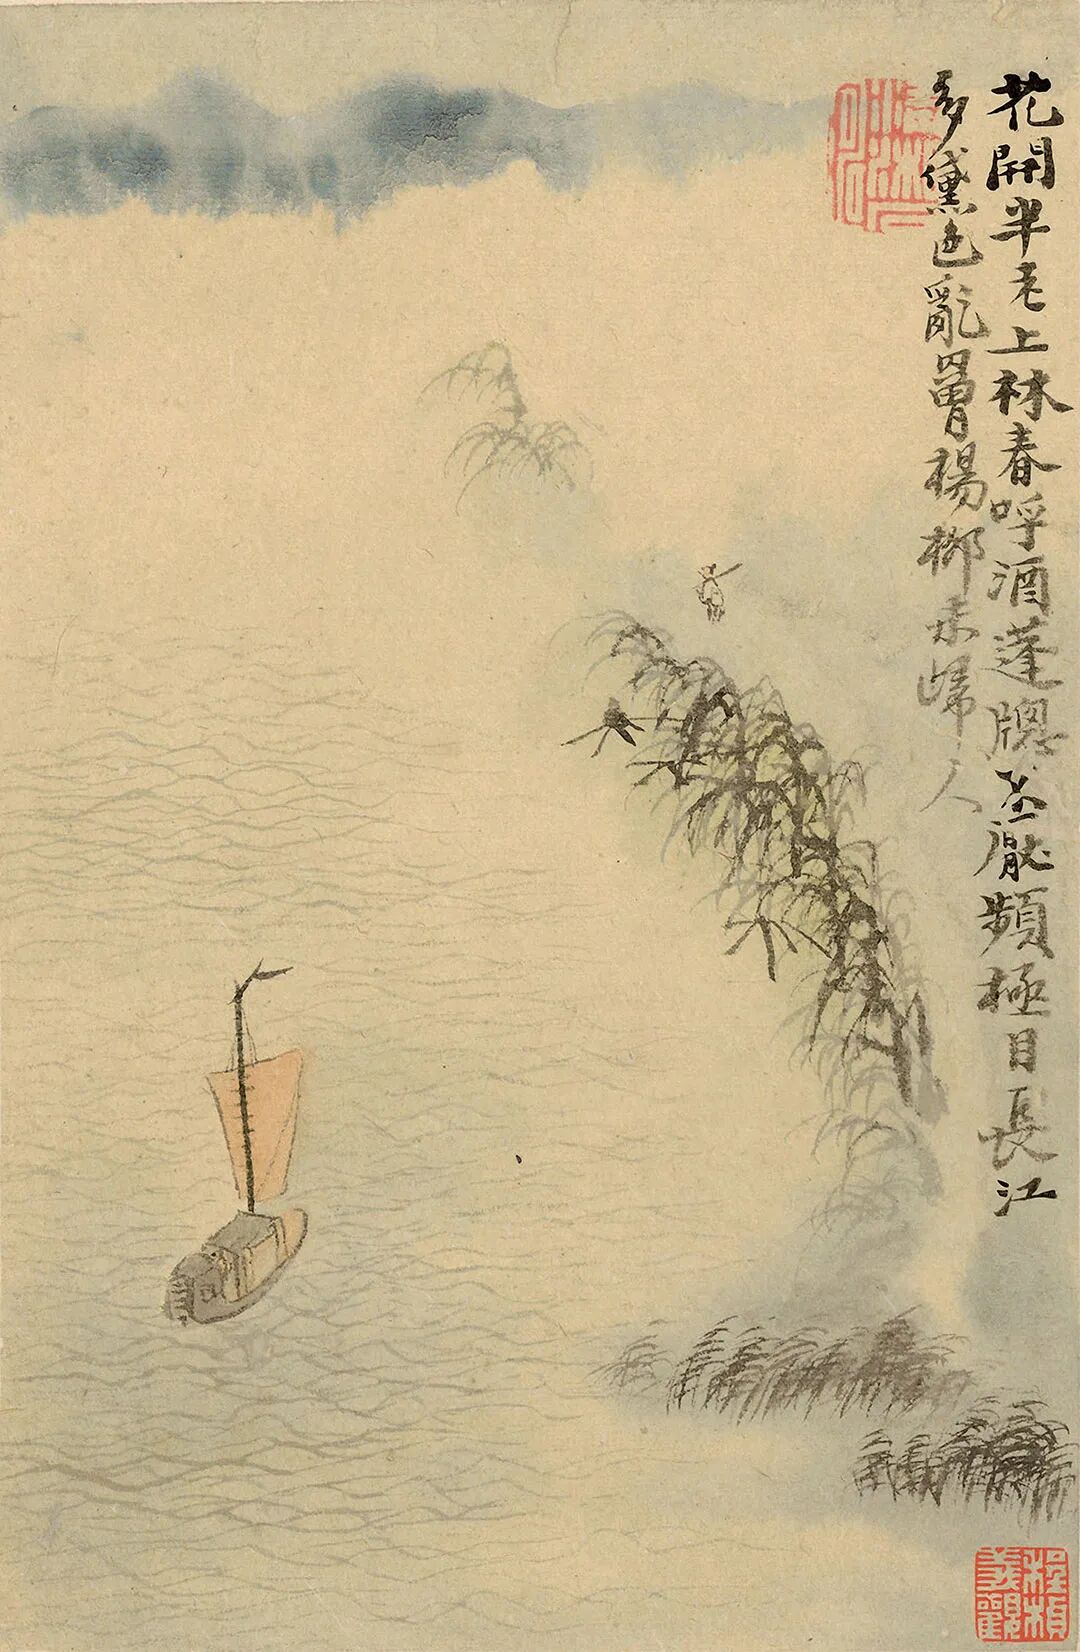 花開半老上林春呼酒蓬牕不厭頻極目長江
多黛色亂罾楊栁未歸人
程楨
義觀